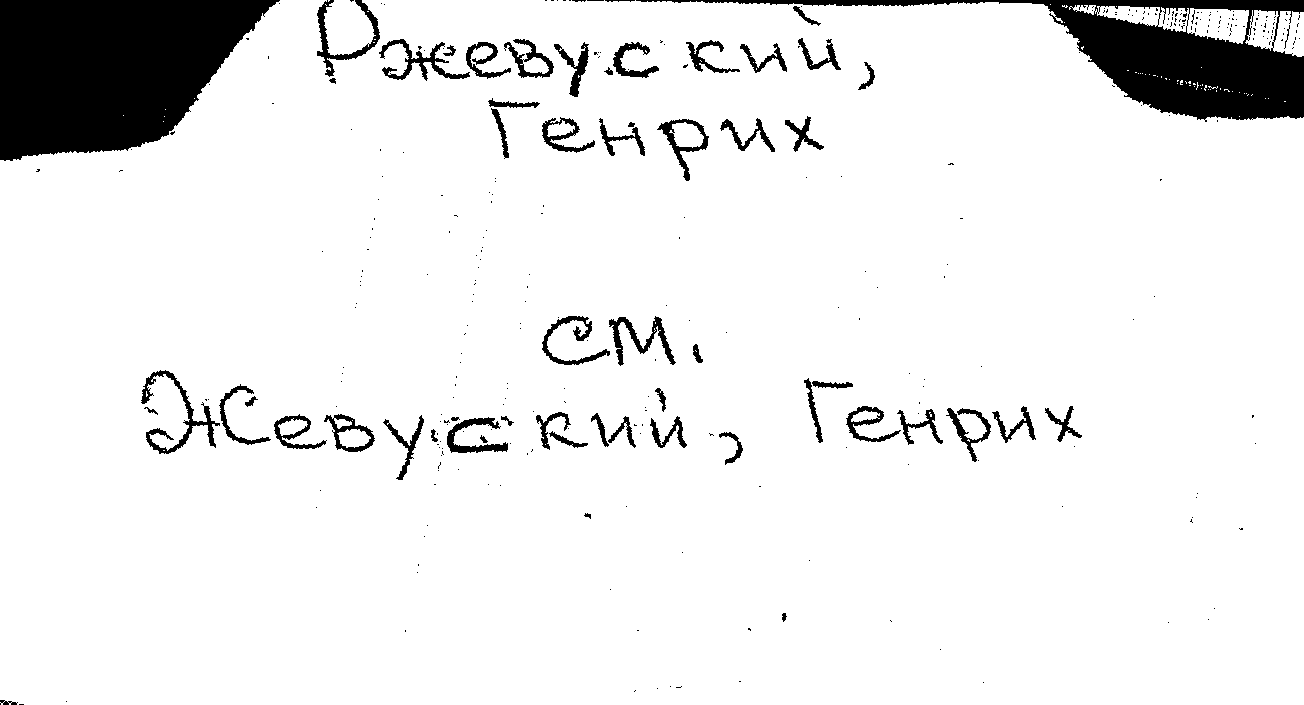 Ржевуский,
Генрих
см.
Жевуский, Генрих